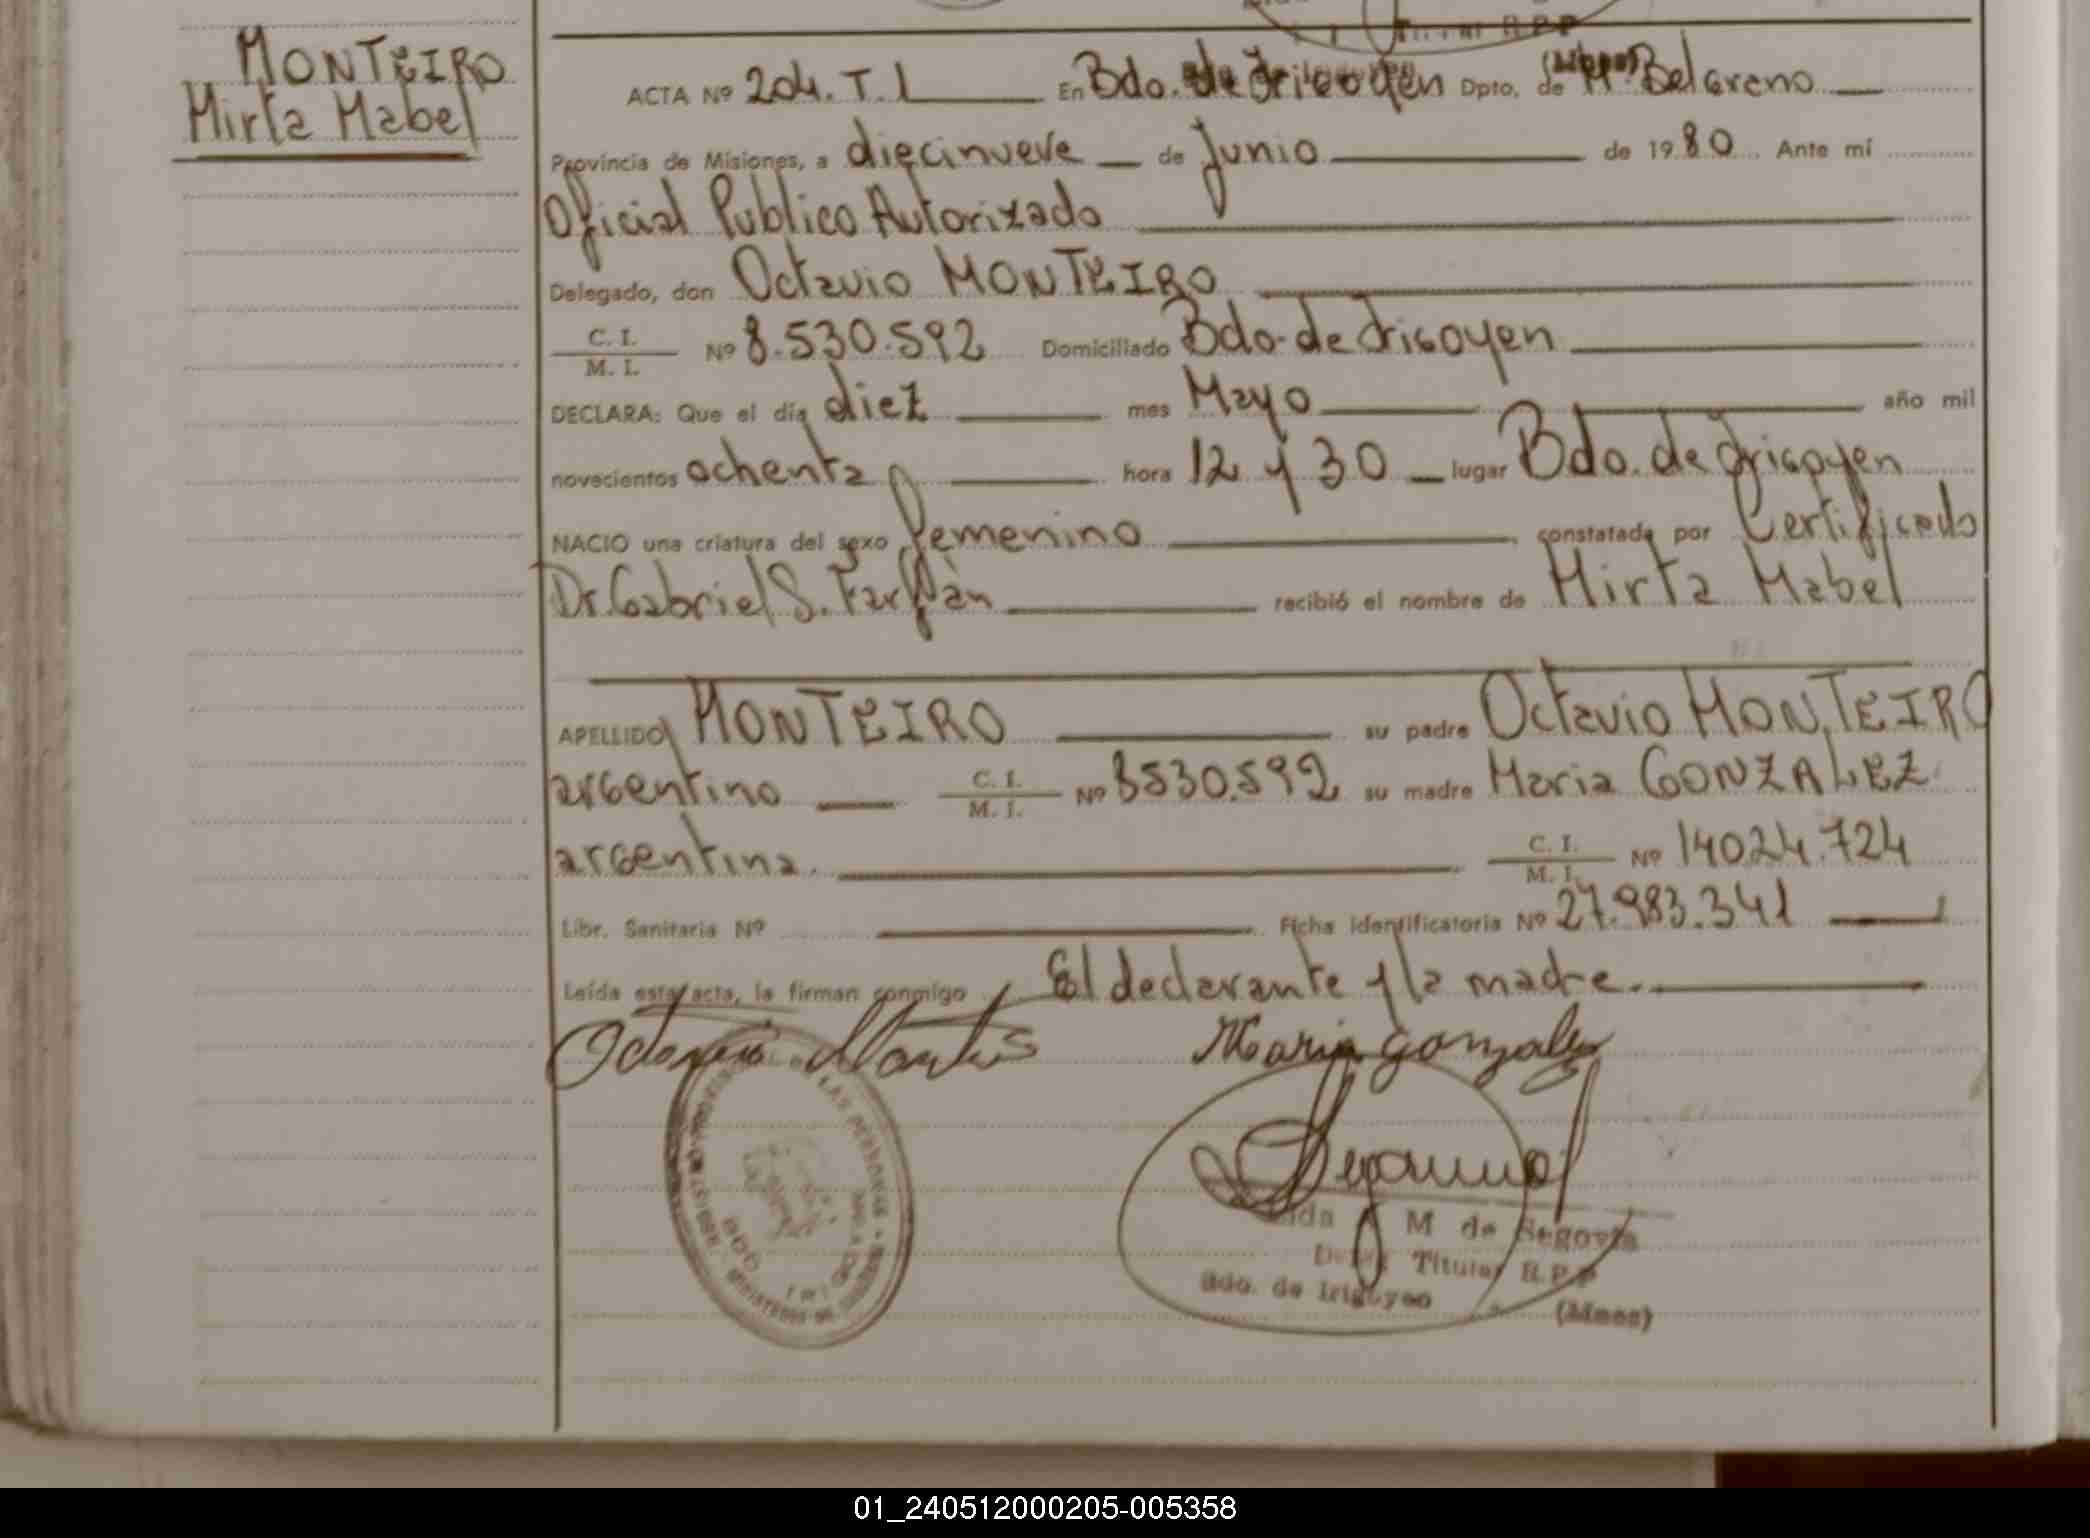 MONTEIRO
Mirta Mabel
ACTA Nº 204. T. I En Bdo. de Irigoyen Dpto. de M. Belgrano
Provincia de Misiones, a diecinueve de Junio de 1980 Ante mí
Oficial Publico Autorizado
Delegado, don Octavio MONTEIRO
C. I.
M. I. Nº 8.530.592 Domiciliado Bdo. de Irigoyen
DECLARA: Que el día diez mes Mayo año mil
novecientos ochenta hora 12 y 30 lugar Bdo. de Irigoyen
NACIO una criatura del sexo femenino constatada por Certificado
Dr. Gabriel S. Farfàn recibió el nombre de Mirta Mabel
APELLIDO MONTEIRO su padre Octavio MONTEIRO
argentino C. I.
M. I. Nº 8530.592 su madre Maria GONZALEZ
argentina. C. I.
M. I. Nº 14024.724
Libr. Sanitaria Nº Ficha identificatoria Nº 27.983.341
Leída esta acta, la firman conmigo El declarante y la madre.
Maria gonzalez
M de Segovia
Titular R.P.P
Bdo. de Irigoyen (Mnes)
01_240512000205-005358